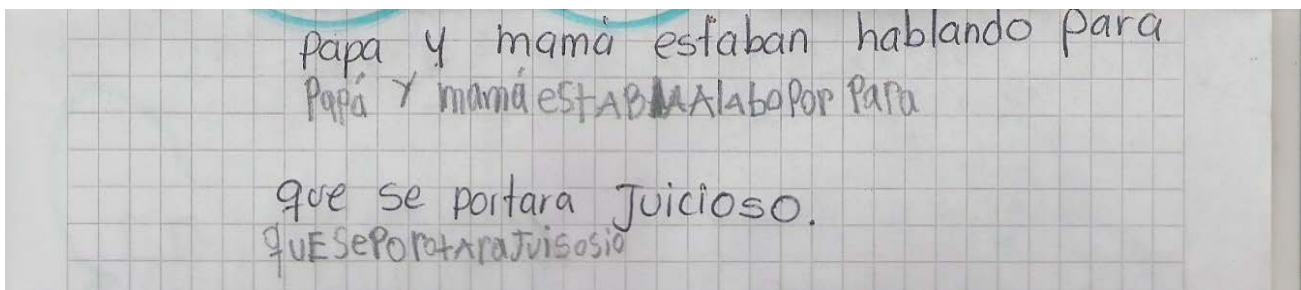 papa y mamá estaban hablando para
Papá Y mamá estABAAAlaboPor Para
que se portara Juicioso.
quESePorotAraJuisosio